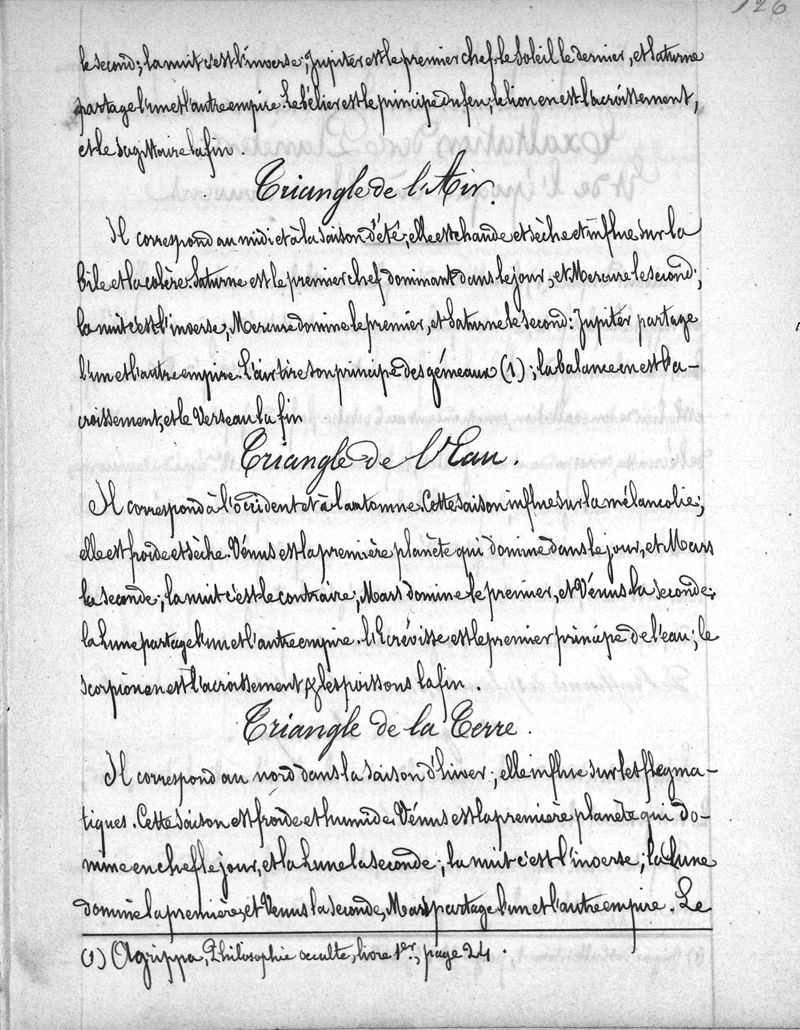 126
le second; la nuit c'est l'inverse; Jupiter est le premier chef, le Soleil le dernier, et Saturne
partage l'un et l'autre empire. Le bélier est le principe du feu; le lion en est l'acroissement,
et le sagittaire la fin.
Triangle de l'Air.
Il correspond au midi et à la saison d'été; elle est chaude et sèche et influe sur la
bile et la colère. Saturne est le premier chef dominant dans le jour, et Mercure le second;
la nuit c'est l'inverse, Mercure domine le premier, et Saturne le second: Jupiter partage
l'un et l'autre empire. L'air tire son principe des gémeaux (1); la balance en est l'a-
croissement, et le Verseau la fin
Triangle de l'Eau.
Il correspond à l'occident et à l'automne. Cette saison influe sur la mélancolie;
elle est froide et sèche. Vénus est la première planète qui domine dans le jour, et Mars
la seconde; la nuit c'est le contraire, Mars domine le premier, et Vénus la seconde;
la Lune partage l'un et l'autre empire. l'Ecrévisse est le premier principe de l'eau; le
scorpion en est l'acroissement & les poissons la fin.
Triangle de la Terre.
Il correspond au nord dans la saison d'hiver; elle influe sur les flegma-
tiques. Cette saison est froide et humide. Vénus est la première planète qui do-
mine en chef le jour, et la Lune la seconde; la nuit c'est l'inverse; la Lune
domine la première, et Venus la seconde, Mars partage l'un et l'autre empire. Le
(1) Agrippa, Philosophie occulte, livre 1er, page 24.